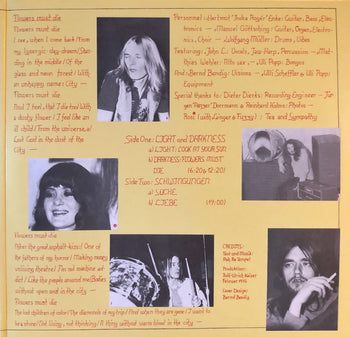 Flowers must die
I see, when I come back / From
my lysergic-day-dream / Standing
in the middle / Of the
glass and neon forest / With
an unhappy name: City —
Flowers must die
And I feel, that I die too / With
a dusty flower / I feel like an
ill child / From the universe, a
Lost God in the dust of the
City —
Personnel: Hartmut "Jodra Pagir" Enke: Guitar, Bass, Elec-
tronics — Manuel Göttsching: Guitar, Organ, Electro-
nics, Choir — Wolfgang Müller: Drums, Vibes
Featuring: John L.: Vocals, Jew-Harp, Percussion — Mat-
thias Wehler: Alto sax — Uli Popp: Bongos
And: Bernd Bendig: Visions — Willi Scheffler & Uli Popp:
Equipment
Special thanks to: Dieter Dierks: Recording Engineer — Jür-
gen Dorrmann & Reinhard Kühne: Photos —
Rosi (with Ginger & Fuzzy): Tea and Sympathy
Side One: LIGHT and DARKNESS
a) LIGHT: LOOK AT YOUR SUN
b) DARKNESS: FLOWERS MUST
DIE (6:20 & 12:20)
Side Two: SCHWINGUNGEN
a) SUCHE
b) LIEBE (19:00)
Flowers must die
When the great asphalt-kiss / One of
the fathers of my horror / Making money
utilising theatre / I'm not machine ad-
dict / Like the people around me / Bodies
without eyes and in the city —
Flowers must die
The lost children of color / The diamonds of my trip / And when they are gone / I want to
be a stone / Not living, not thinking / A thing without warm blood in the city —
CREDITS:
Text und Musik:
Ash Ra Tempel
Produktion:
Rolf-Ulrich Kaiser
Februar 1972
Cover Design:
Bernd Bendig